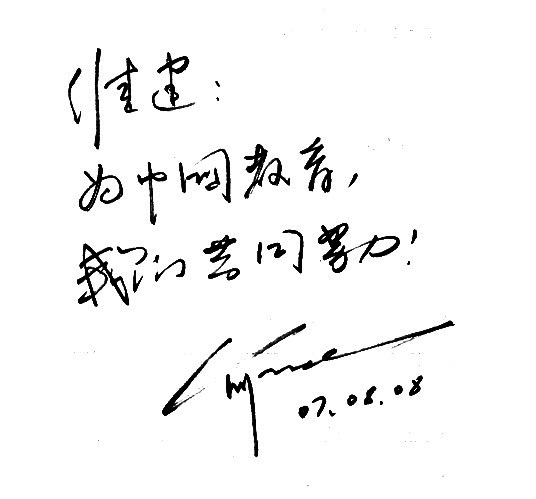 佳建：
为中国教育，
我们共同努力！
07.08.08